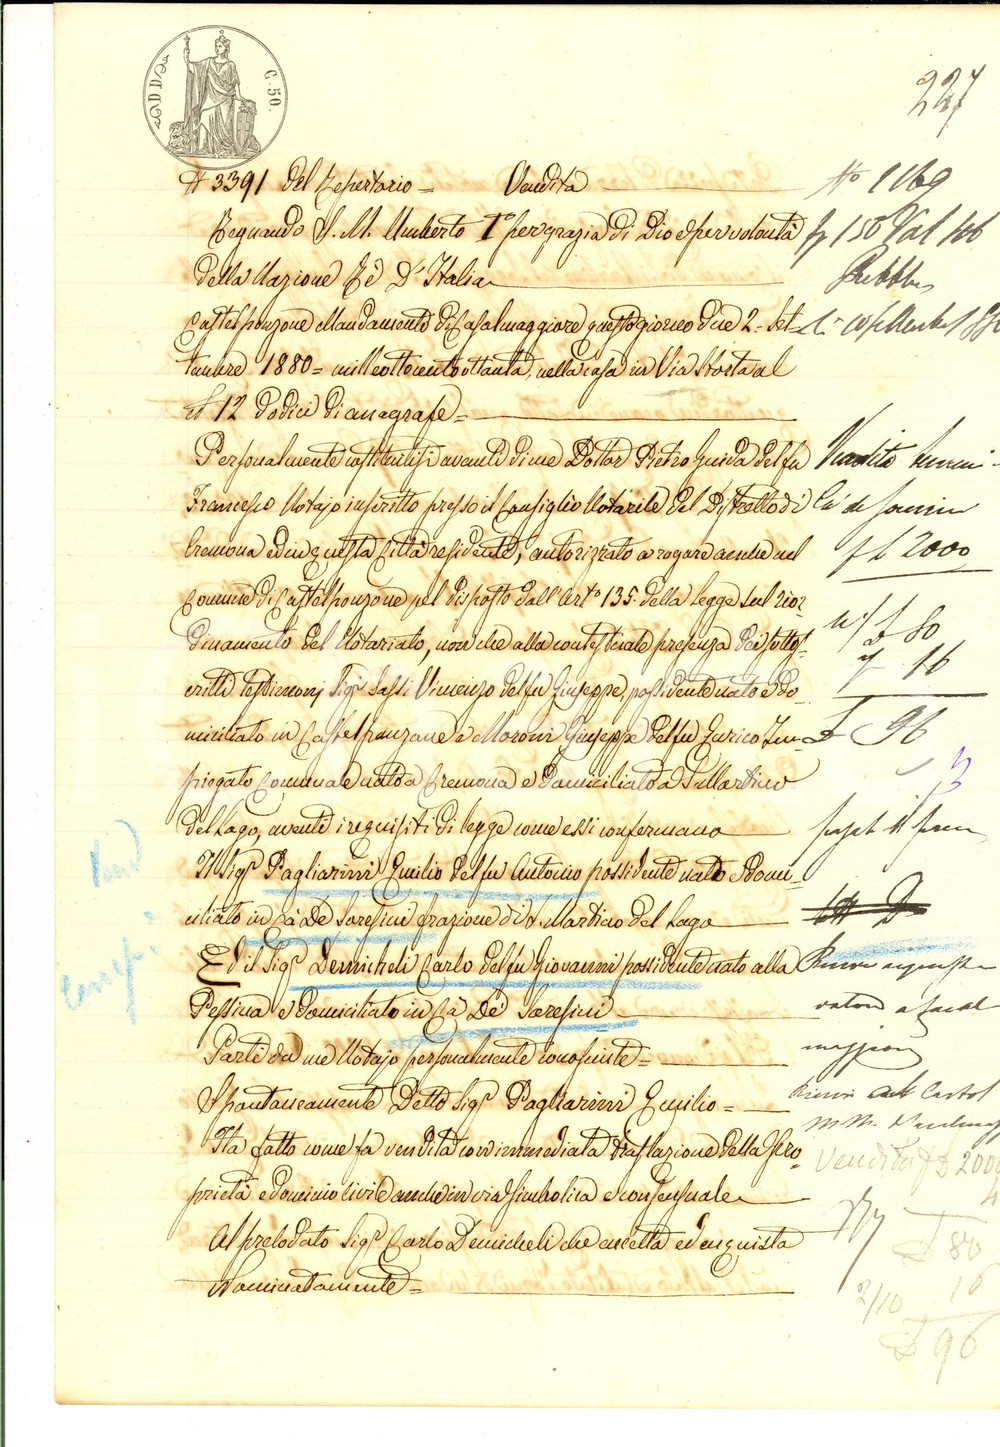 C. 50.
227
N 3391 del Repertorio = Vendita
N° 1169
Regnando S. M. Umberto I° per grazia di Dio e per volontà
della Nazione Rè D'Italia
Castelponzone Mandamento di Casalmaggiore questo giorno due 2= Set=
tembre 1880= mille ottocento ottanta, nella casa in Via Storta al
N° 12 dodici di anagrafe=
Personalmente costituitisi avanti di me Dottor Pietro Guida del fu
Francesco Notajo inscritto presso il Consiglio Notarile del Distretto di
Cremona ed in questa Città residente, autorizzato a rogare anche nel
f L 2000
Comune di Castelponzone pel disposto dall'Art° 135. della legge sul rior=
80
dinamento del Notariato, non che alla contestuale presenza dei sottos=
16
critti testimonj Sigi Sassi Vincenzo del fu Giuseppe, possidente nato e do=
miciliato in Castelponzone e Moroni Giuseppe del fu Enrico Im=
L 96
piegato Comunale nato a Cremona e domiciliato a S. Martino
3
del Lago, aventi i requisiti di legge come essi confermano
Il Sigr Pagliarini Emilio del fu Antonio possidente nato e domi=
ciliato in Cà De Soresini frazione di S. Martino del Lago
Ed il Sigr Demicheli Carlo del fu Giovanni possidente nato alla
Pessina e domiciliato in Cà De' Soresini
Parti da me Notajo personalmente conosciute=
Spontaneamente detto Sigr Pagliarini Emilio=
Ha fatto come fa vendita con immediata traslazione della pro=
Vendita L 2000
4
prietà e dominio civile anche in via simbolica e consensuale
Al prelodato Sigr Carlo Demicheli che accetta ed acquista
L 80
Nominatamente=
2/10 16
L 96